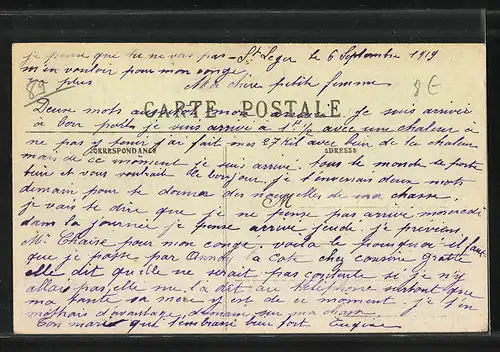 je pense que tu ne vas pas - St Leger le 6 Septembre 1919
m'en vouloir pour mon congé
89 plus Ma chère petite femme 8€
CARTE POSTALE
Deux mots mon je suis arrivé
à bon port je suis arrivé à 1 H ½ avec une chaleur à
ne pas y tenir j'ai fait mes 27 Kil avec bien de la chaleur
CORRESPONDANCE ADRESSE
mais de ce moment je suis arrivé tous le monde se porte
bien et vous souhaite le bonjour, je t'enverrais deux mots
demain pour te donner des nouvelles de ma chasse,
je vais te dire que je ne pense pas arrivé mercredi
dans la journée je pense arrivé jeudi je préviens
Mr Chaise pour mon congé. voila le pourquoi il faut
que je passe par la Cote chez cousine
elle dit qu'elle ne serait pas contente si je n'y
allais pas, elle me l'a dit au téléphone surtout que
ma tante sa mère y est de ce moment. je t'en
mettrais d'avantage demain sur ma chasse.
Ton mari qui t'embrasse bien fort Eugène